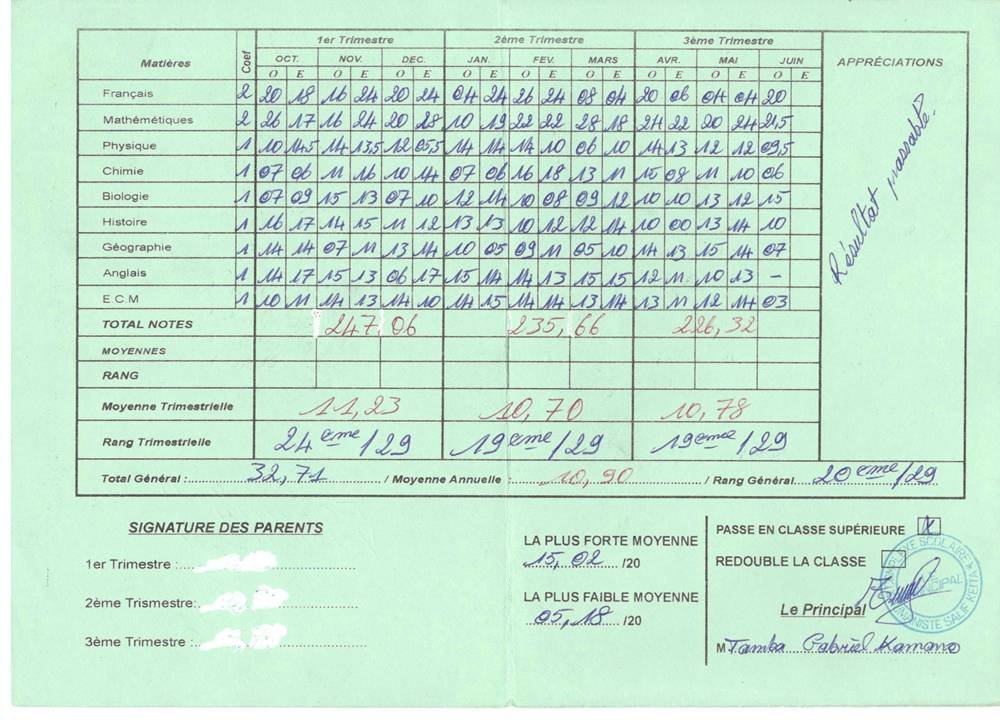 1er Trimestre 2ème Trimestre 3ème Trimestre
Matières Coef OCT. NOV. DEC. JAN. FEV. MARS AVR. MAI JUIN APPRÉCIATIONS
O E O E O E O E O E O E O E O E O E
Français 2 20 18 16 24 20 24 04 24 26 24 08 04 20 06 04 04 20
Mathémétiques 2 26 17 16 24 20 28 10 19 22 22 28 18 24 22 20 24 21,5
Physique 1 10 14,5 14 13,5 12 05,5 14 14 14 10 06 10 14 13 12 12 09,5
Chimie 1 07 06 11 16 10 14 07 06 16 18 13 11 15 08 11 10 06
Biologie 1 07 09 15 13 07 10 12 14 10 08 09 12 10 10 13 12 15
Histoire 1 16 17 14 15 11 12 13 13 10 12 12 14 10 00 13 14 10
Géographie 1 14 14 07 11 13 14 10 05 09 11 05 10 14 13 15 14 07
Anglais 1 14 17 15 13 06 17 15 14 14 13 15 15 12 11 10 13 -
E.C.M 1 10 11 14 13 14 10 14 15 14 14 13 14 13 11 12 14 03
Résultat passable.
TOTAL NOTES 247,06 235,66 226,32
MOYENNES
RANG
Moyenne Trimestrielle 11,23 10,70 10,78
Rang Trimestrielle 24ème/29 19ème/29 19ème/29
Total Général : 32,71 / Moyenne Annuelle : 10,90 / Rang Général 20ème/29
SIGNATURE DES PARENTS
1er Trimestre :
2ème Trismestre:
3ème Trimestre :
LA PLUS FORTE MOYENNE
15,02 /20
LA PLUS FAIBLE MOYENNE
05,18 /20
PASSE EN CLASSE SUPÉRIEURE X
REDOUBLE LA CLASSE
Le Principal
M Tamba Gabriel Kamano
SCOLAIRE
PRINCIPAL
SALIF KEITA